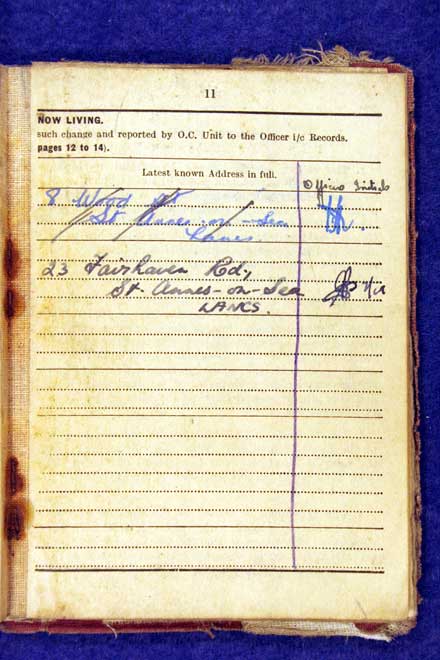 11
NOW LIVING.
such change and reported by O.C. Unit to the Officer i/c Records.
pages 12 to 14).
Latest known Address in full.
Officers Initials
8 Wood St
St Annes-on-Sea
Lancs.
23 Fairhaven Rd,
St. Annes-on-Sea
LANCS.